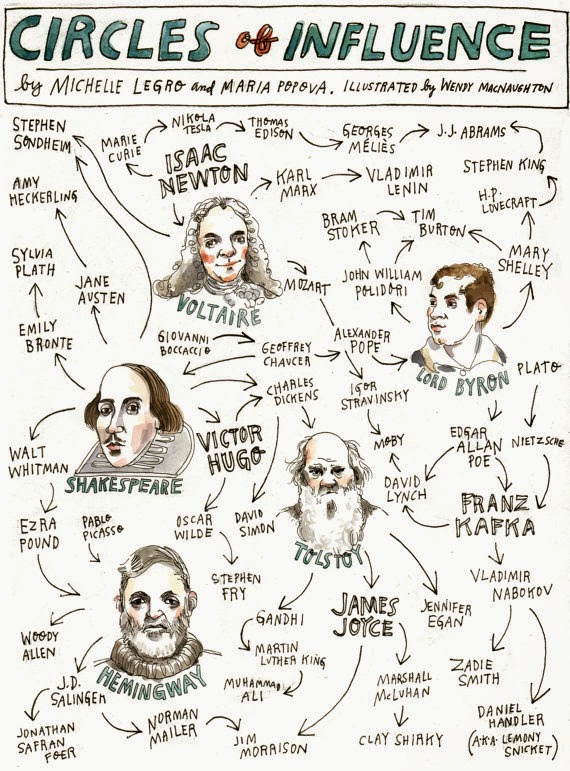 CIRCLES of INFLUENCE
by MICHELLE LEGRO and MARIA POPOVA. ILLUSTRATED by WENDY MACNAUGHTON
STEPHEN
SONDHEIM
MARIE
CURIE
NIKOLA
TESLA
THOMAS
EDISON
GEORGES
MÉLIÈS
J.J. ABRAMS
ISAAC
NEWTON
KARL
MARX
VLADIMIR
LENIN
STEPHEN KING
AMY
HECKERLING
H.P.
LOVECRAFT
BRAM
STOKER
TIM
BURTON
MARY
SHELLEY
SYLVIA
PLATH
JANE
AUSTEN
VOLTAIRE
MOZART
JOHN WILLIAM
POLIDORI
EMILY
BRONTE
GIOVANNI
BOCCACCIO
GEOFFREY
CHAUCER
ALEXANDER
POPE
LORD BYRON
PLATO
CHARLES
DICKENS
IGOR
STRAVINSKY
WALT
WHITMAN
SHAKESPEARE
VICTOR
HUGO
MOBY
EDGAR
ALLAN
POE
NIETZSCHE
DAVID
LYNCH
FRANZ
KAFKA
EZRA
POUND
PABLO
PICASSO
OSCAR
WILDE
DAVID
SIMON
TOLSTOY
STEPHEN
FRY
VLADIMIR
NABOKOV
GANDHI
JAMES
JOYCE
JENNIFER
EGAN
WOODY
ALLEN
HEMINGWAY
MARTIN
LUTHER KING
MUHAMMAD
ALI
MARSHALL
McLUHAN
ZADIE
SMITH
J.D.
SALINGER
NORMAN
MAILER
JIM
MORRISON
CLAY SHIRKY
DANIEL
HANDLER
(A.K.A. LEMONY
SNICKET)
JONATHAN
SAFRAN
FOER